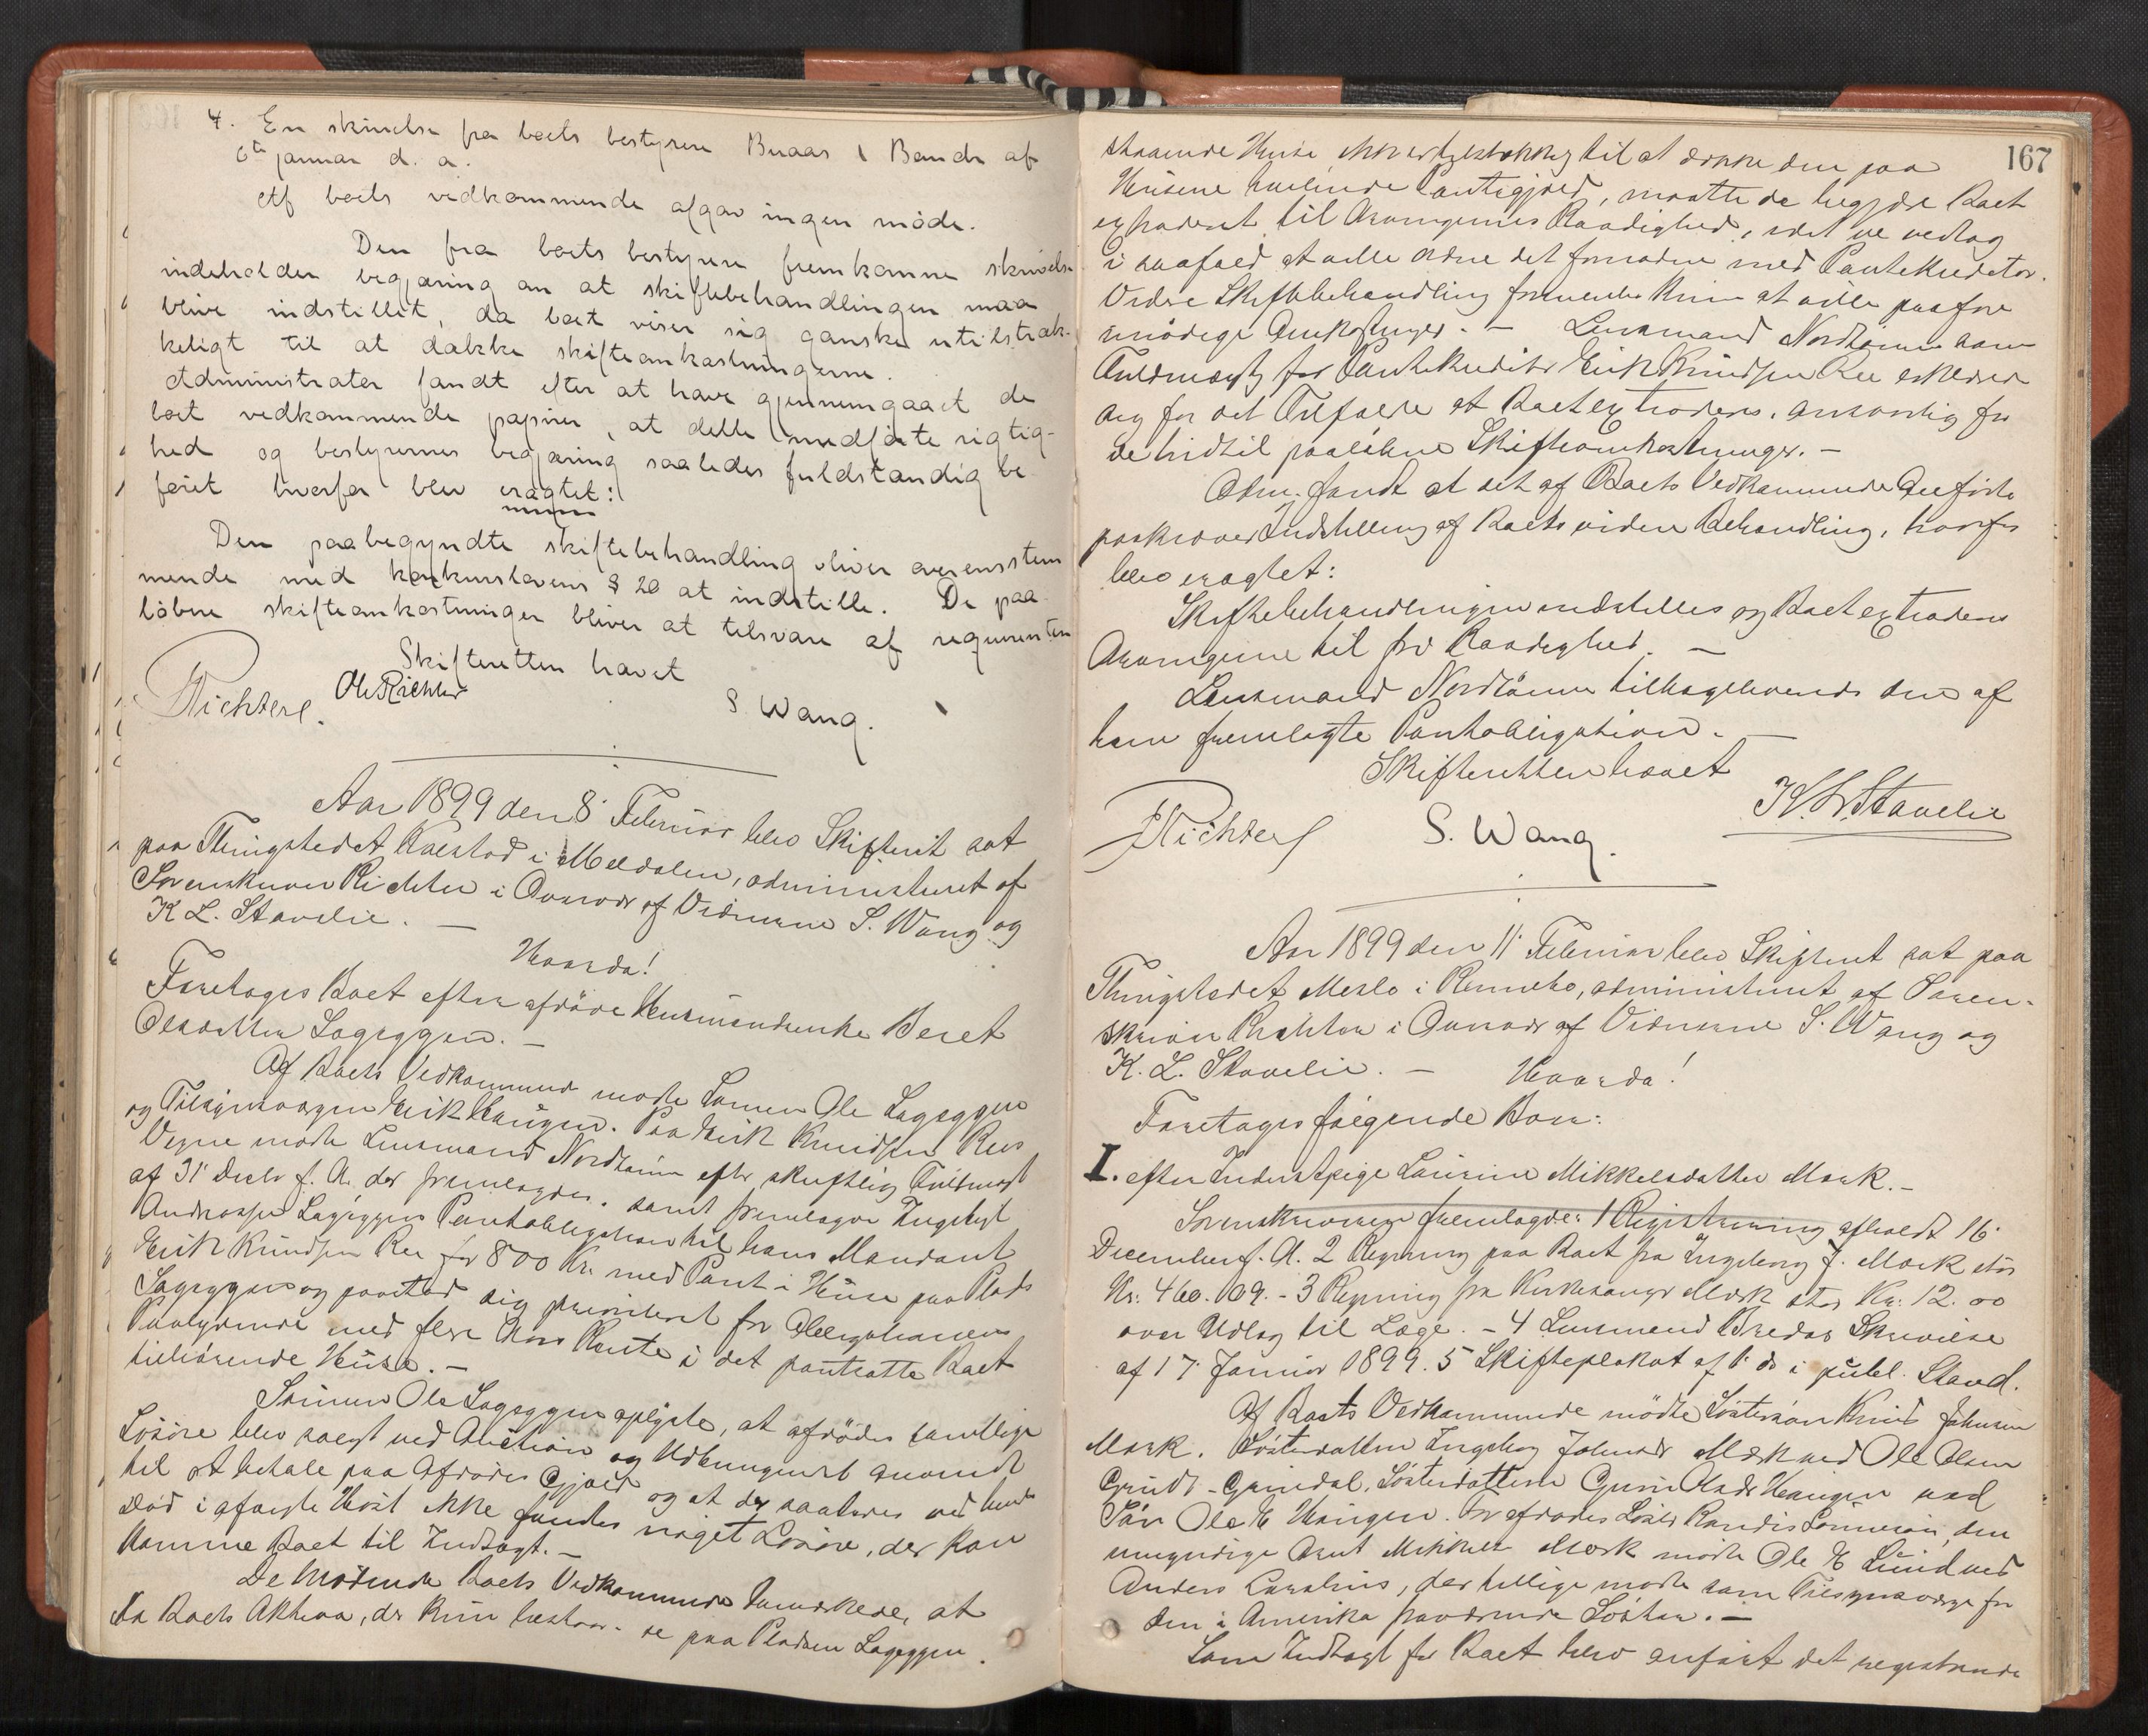 4. En skrivelse fra boets bestyrere Buaas & Bande af
6te januar d. a.
Af boets vedkommende afgav ingen møde.
Den fra boets bestyrere fremkomne skrivelse
indeholder begjæring om at skiftebehandlingen maa
blive indstillet, da boet viser sig ganske utilstræk-
keligt til at dække skifteomkostningerne.
Administrator fandt efter at have gjennemgaaet de
boet vedkommende papirer, at dette medførte rigtig-
hed og bestyrernes begjæring saaledes fuldstændig be
føiet hvorfor blev eragtet:
Den paabegyndte skiftebehandling bliver overensstem
mende med konkurslovens § 20 at indstille. De paa
løbne skifteomkostninger bliver at tilsvare af requirenten
Skifteretten hævet
Richter. Ole Richter S. Wang.
Aar 1899 den 8' Februar blev Skifteret sat
paa Thingstedet Kalstad i Meldalen, administreret af
Sorenskriver Richter i Overvær af Vidnerne S. Wang og
K L. Stavelie. —
Hvorda!
Foretoges Boet efter afdøde Husmandsenke Beret
Olsdatter Lageggen. —
Af Boets Vedkommende mødte Sønnen Ole Lageggen
og Tilsynsværgen Erik Haugen. Paa Erik Knudsen Rees
Vegne mødte Lensmand Nordtømme efter skriftlig Fuldmagt
af 31' Decbr f. A. der fremlagdes. samt fremlagde Ingebrigt
Andreassen Lageggens Pantobligation til hans Mandant
Erik Knudsen Ree for 800 Kr. med Pant i Huse paa Plads
Lageggen og paastod sig prioriteret for Obligationens
Paalydende med flere Aars Rente i det pantsatte Boet
tilhørende Huse. —
Sønnen Ole Lageggen oplyste, at afdødes samtlige
Løsøre blev solgt ved Auction og Udbringendet anvendt
til at betale paa Afdødes Gjæld og at der saaledes ved hendes
Død i afvigte Høst ikke fandtes noget Løsøre, der kan
komme Boet til Indtægt. —
De mødende Boets Vedkommende bemærkede, at
da Boets Aktiva, der kun bestaar i de paa Pladsen Lageggen
167
staaende Huse ikke er tilstrækkelig til at dække den paa
Husene heftende Pantegjæld, maatte de begjære Boet
extraderet til Arvingernes Raadighed, idet de vedtog
i saafald at ville ordne det fornødne med Pantekreditor.
Videre Skiftebehandling formentes kun at ville paaføre
unødige Omkostninger. — Lensmand Nordtømme som
Fuldmægtig for Pantekreditor Erik Knudsen Ree erklærede
sig for det Tilfælde at Boet extraderes, ansvarlig for
de hidtil paaløbne Skifteomkostninger. —
Adm. fandt at det af Boets Vedkommende Anførte
paakræver Indstilling af Boets videre Behandling, hvorfor
blev eragtet:
Skiftebehandlingen indstilles og Boet extraderes
Arvingerne til fri Raadighed. —
Lensmand Nordtømme tilbageleveredes den af
ham fremlagte Pantobligation. —
Skifteretten hævet
Richter S. Wang. K. L. Stavelie
Aar 1899 den 11' Februar blev Skifteret sat paa
Thingstedet Merlo i Rennebo, administreret af Soren-
skriver Richter i Overvær af Vidnerne S. Wang og
K. L. Stavelie. — Hvorda!
Foretoges følgende Boer:
I. efter Inderstpige Laurine Mikkelsdatter Mærk. —
Sorenskriveren fremlagde: 1 Registrering afholdt 16'
December f. A. 2 Regning paa Boet fra Ingeborg J. Mærk stor
Kr. 460.69. - 3 Regning fra Kirkesanger Mærk stor Kr. 12.00
over Udlæg til Læge. - 4 Lensmand Bredes Skrivelse
af 17' Januar 1899. 5 Skifteplakat af s. D. i publ. Stand.
Af Boets Vedkommende mødte Søstersøn Knud Johnsen
Mærk. Søsterdatter Ingeborg Johnsdr Mærk ved Ole Olsen
Grindal, Søsterdatteren Guru Olsdr Haugen ved
Søn Ole E Haugen. For afdødes Søster Randis Sønnesøn, den
umyndige Arnt Mikkelsen Mærk mødte Ole E Lund ved
Anders, der tillige mødte som Tilsynsværge for
den i Amerika fraværende Søster. —
Som Indtægt for Boet blev anført det registrerede